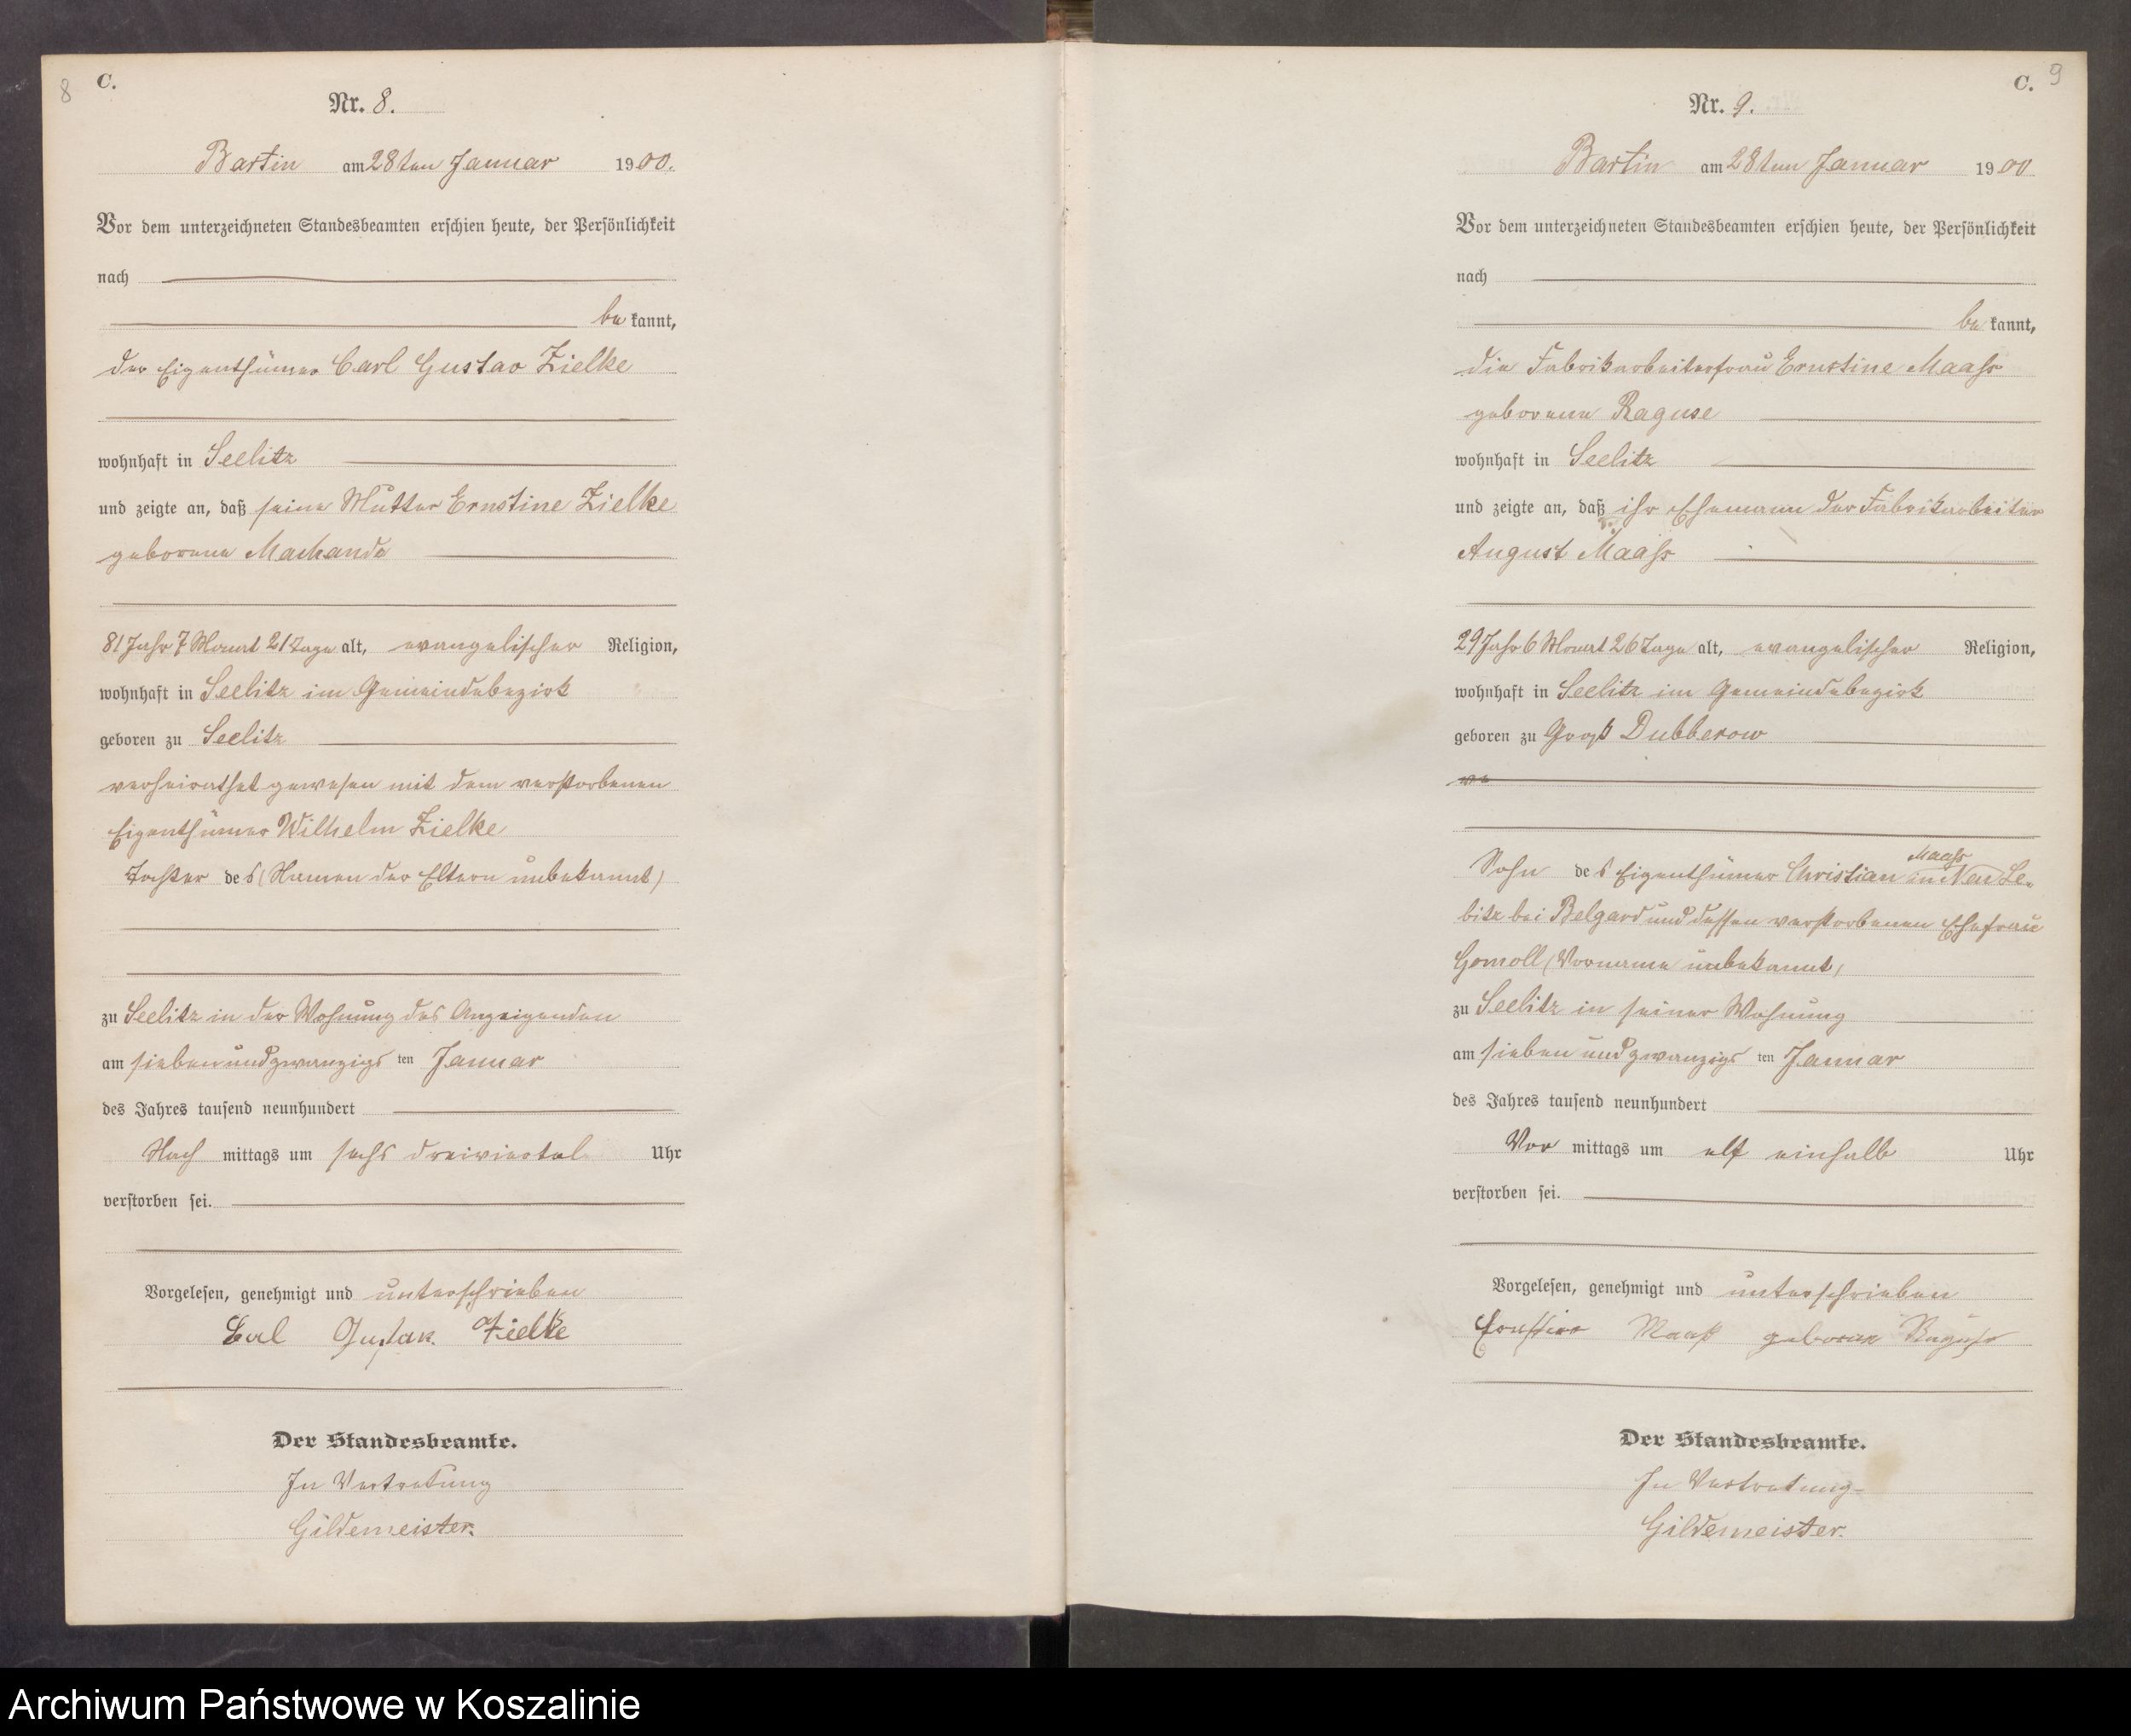 8
C.
Nr. 8.
Bartin am 28ten Januar 1900.
Vor dem unterzeichneten Standesbeamten erschien heute, der Persönlichkeit
nach
be kannt,
der Eigenthümer Carl Gustav Zielke
wohnhaft in Seelitz
und zeigte an, daß seine Mutter Ernstine Zielke
geborene
81 Jahr 7 Monat 21 Tage alt, evangelischer Religion,
wohnhaft in Seelitz im Gemeindebezirk
geboren zu Seelitz
verheirathet gewesen mit dem verstorbenen
Eigenthümer Wilhelm Zielke
Tochter des (Namen der Eltern unbekannt)
zu Seelitz in der Wohnung des Anzeigenden
am siebenundzwanzigs ten Januar
des Jahres tausend neunhundert
Nach mittags um sechs dreiviertel Uhr
verstorben sei.
Vorgelesen, genehmigt und unterschrieben
Carl Gustav Zielke
Der Standesbeamte.
In Vertretung
Gildemeister.
C. 9
Nr. 9.
Bartin am 28ten Januar 1900
Vor dem unterzeichneten Standesbeamten erschien heute, der Persönlichkeit
nach
be kannt,
die Fabrikarbeiterfrau Ernstine Maass
geborene Raguse
wohnhaft in Seelitz
und zeigte an, daß ihr Ehemann der Fabrikarbeiter
August Maass
29 Jahr 6 Monat 26 Tage alt, evangelischer Religion,
wohnhaft in Seelitz im Gemeindebezirk
geboren zu Groß Dubberow
Maass
Sohn des Eigenthümer Christian in Neu Le-
bitz bei Belgard und dessen verstorbenen Ehefrau
Gomoll (Vorname unbekannt)
zu Seelitz in seiner Wohnung
am siebenundzwanzigs ten Januar
des Jahres tausend neunhundert
Vor mittags um elf einhalb Uhr
verstorben sei.
Vorgelesen, genehmigt und unterschrieben
Ernstine Maaß geborene Raguse
Der Standesbeamte.
In Vertretung
Gildemeister.
Archiwum Państwowe w Koszalinie